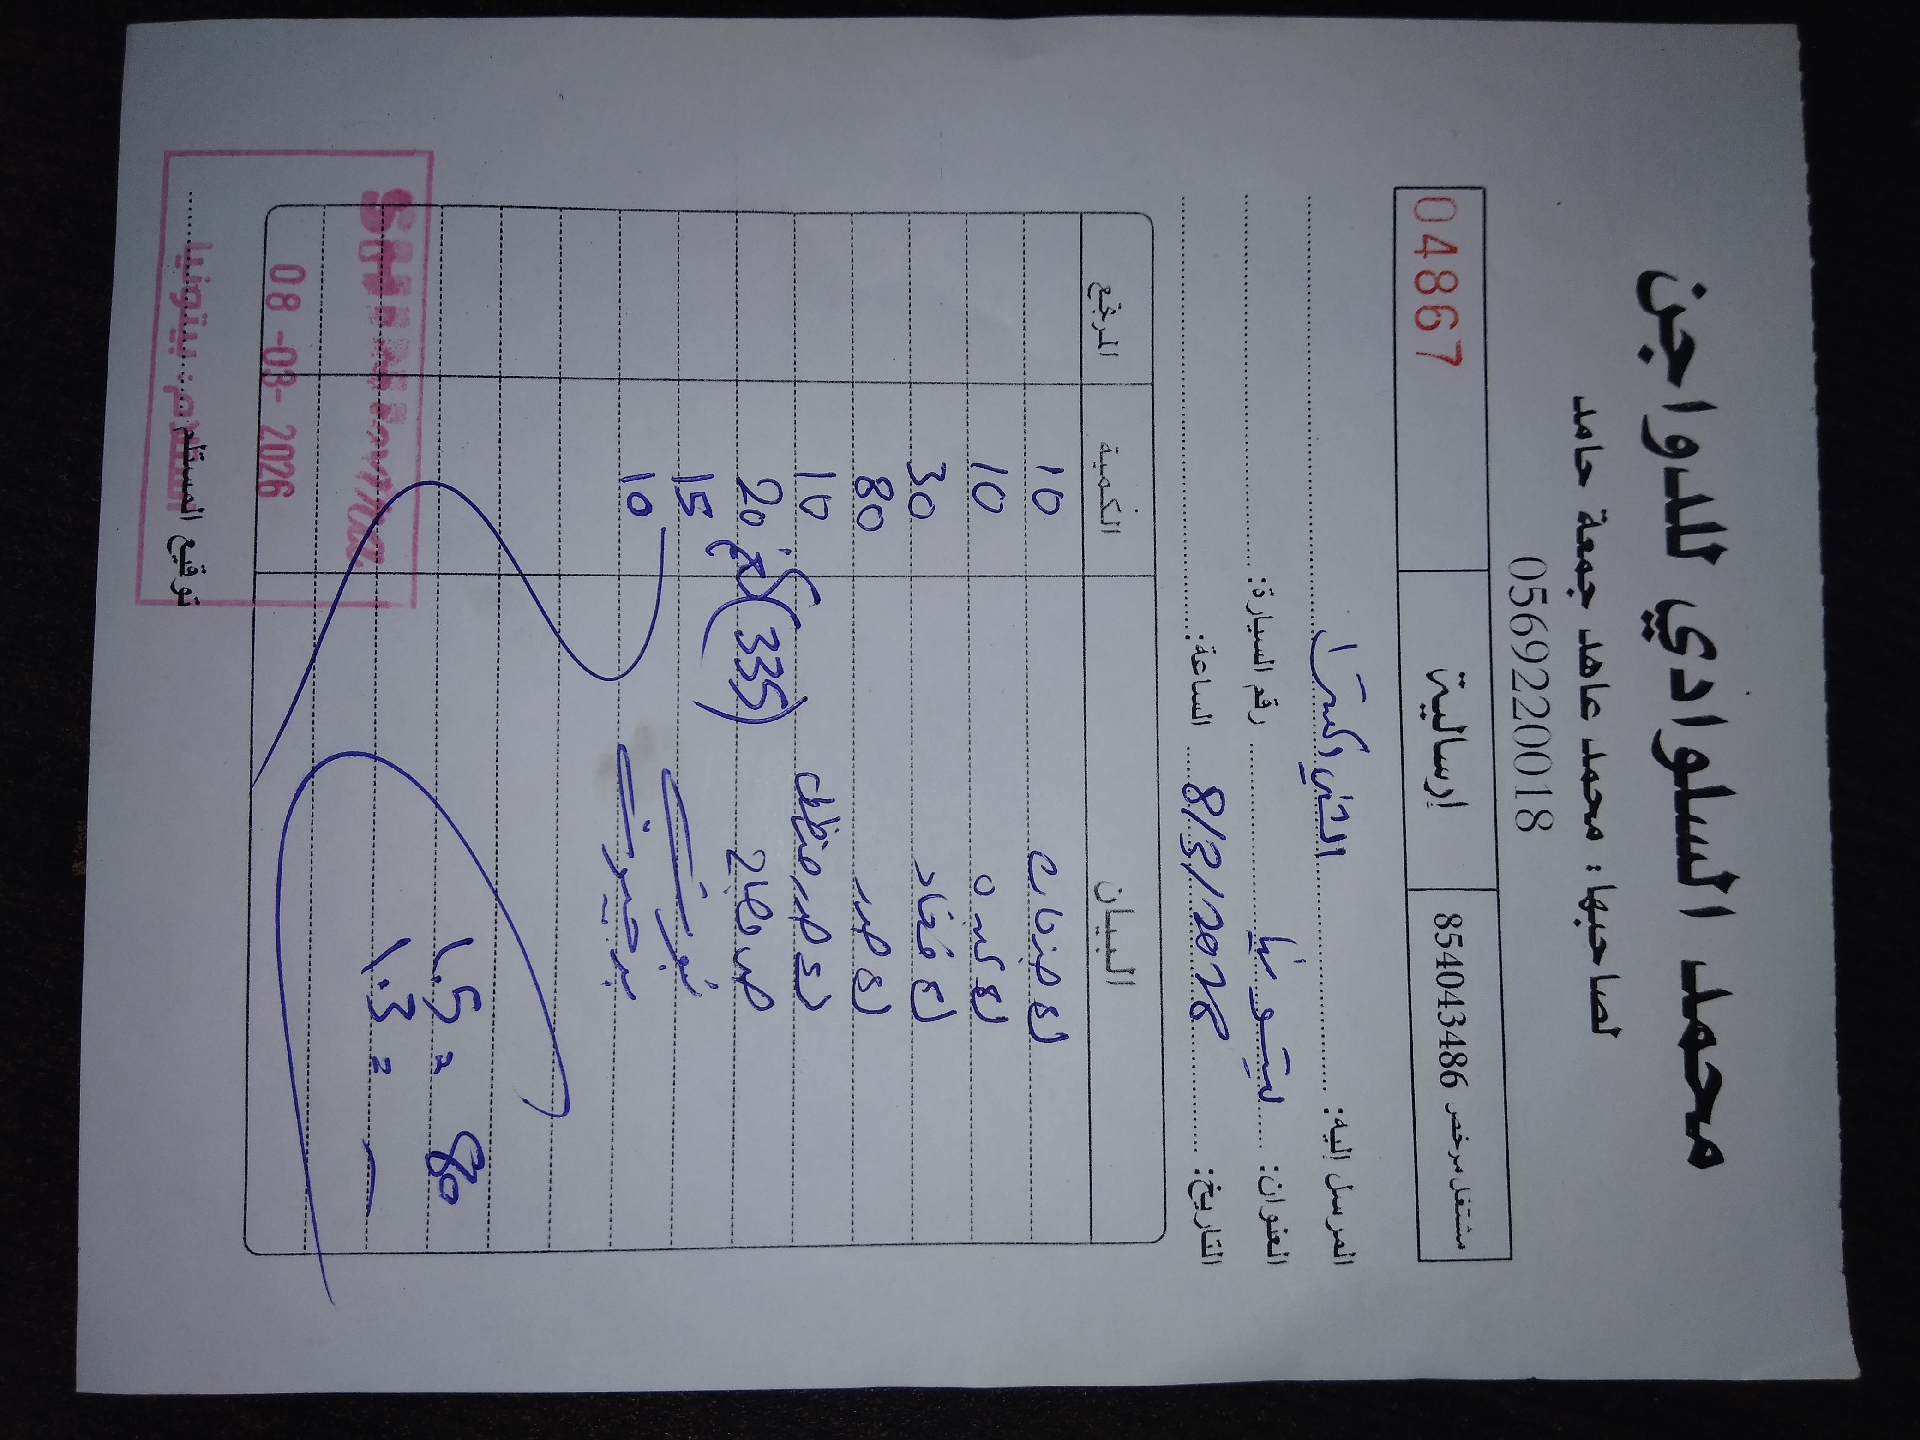 محمد السلوادي للدواجن
لصاحبها: محمد عاهد جمعة حامد
0569220018
مشتغل مرخص 854043486 إرسالية 04867
المرسل اليه: الثني اكسترا
العنوان: بيتونيا رقم السيارة:
التاريخ: 8/3/2026 الساعة:
البيان الكمية المرتجع
كغ جنحان 10
كغ كبده 10
كغ فخاد 30
كغ صدر 80
كغ صدر مفطل 10
صدر دجاج (335) 20
15
10
1.5 = 80
1.3 =
08 -03- 2026
توقيع المستلم
القدم: بيتونيا